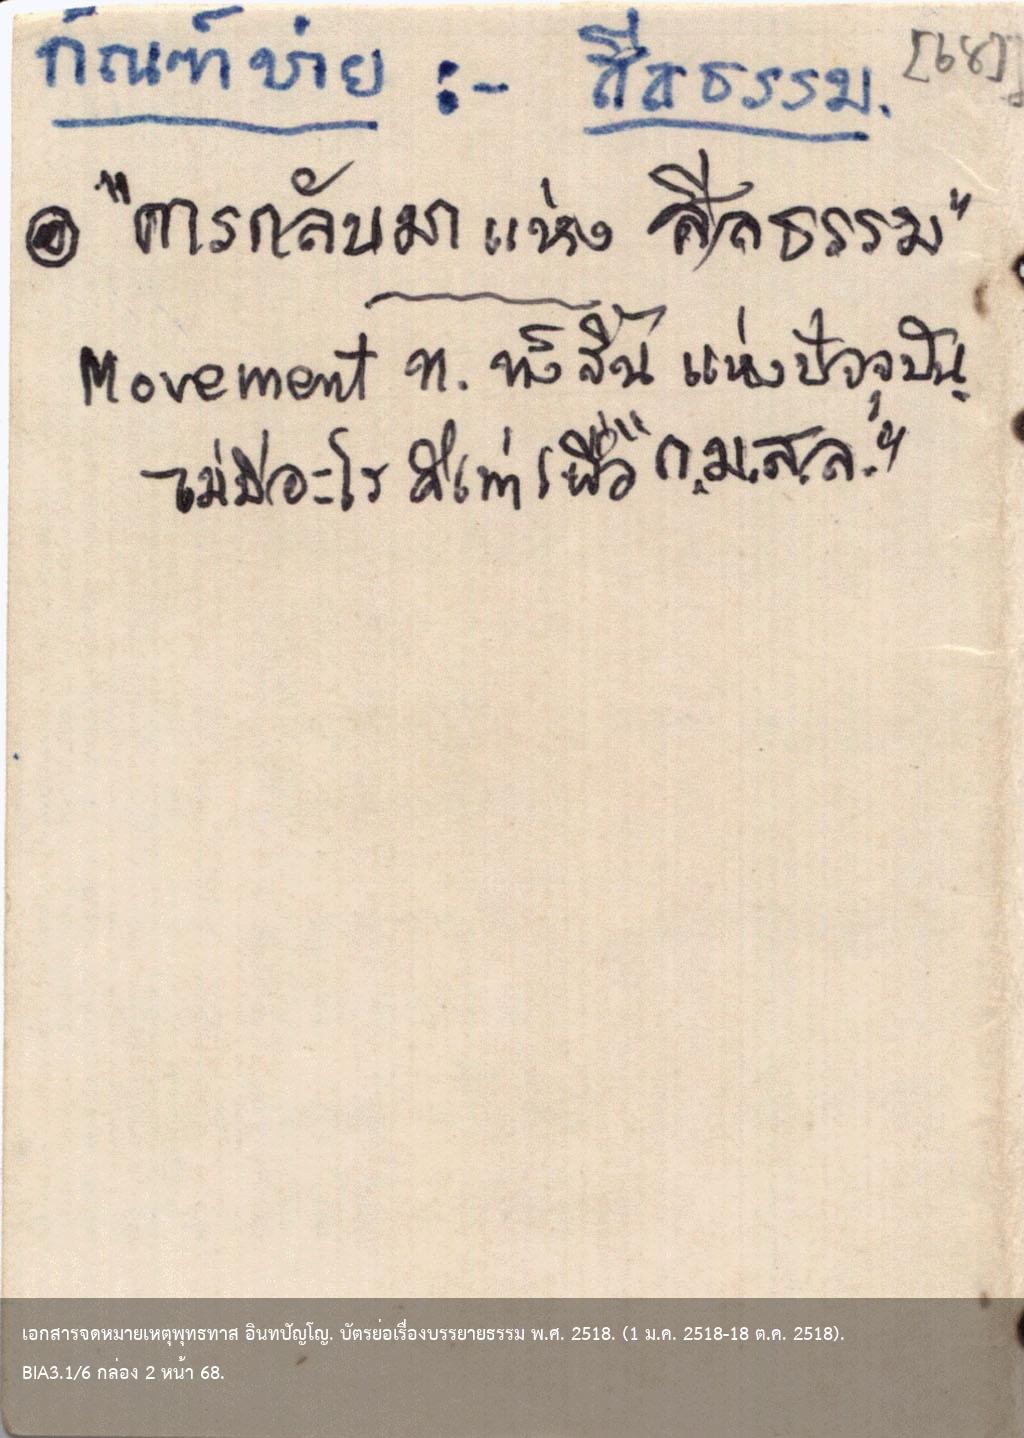 กัณฑ์บ่าย :- ศีลธรรม. [68]
"การกลับมา แห่ง ศีลธรรม"
Movement ท. ทั้งสิ้น แห่งปัจจุบัน
ไม่มีอะไร ดีเท่า เพื่อ "ก.ม.ส.ล."
เอกสารจดหมายเหตุพุทธทาส อินทปัญโญ. บัตรย่อเรื่องบรรยายธรรม พ.ศ. 2518. (1 ม.ค. 2518-18 ต.ค. 2518).
BIA3.1/6 กล่อง 2 หน้า 68.